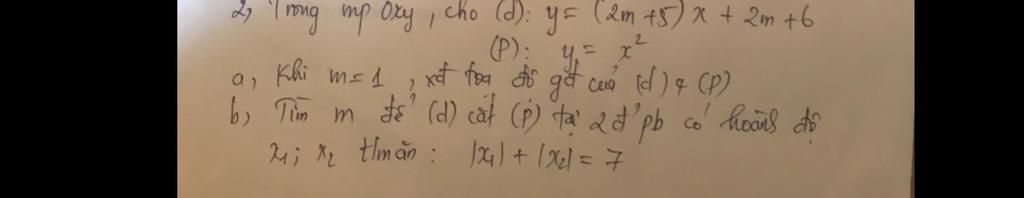 2, Trong mp Oxy, cho (d): y = (2m+5)x + 2m+6
(P): y = x²
a, Khi m=1, xđ toạ độ gđ của (d) & (P)
b, Tìm m để (d) cắt (P) tại 2 đ' pb có hoành độ
x₁; x₂ t/mãn: |x₁| + |x₂| = 7